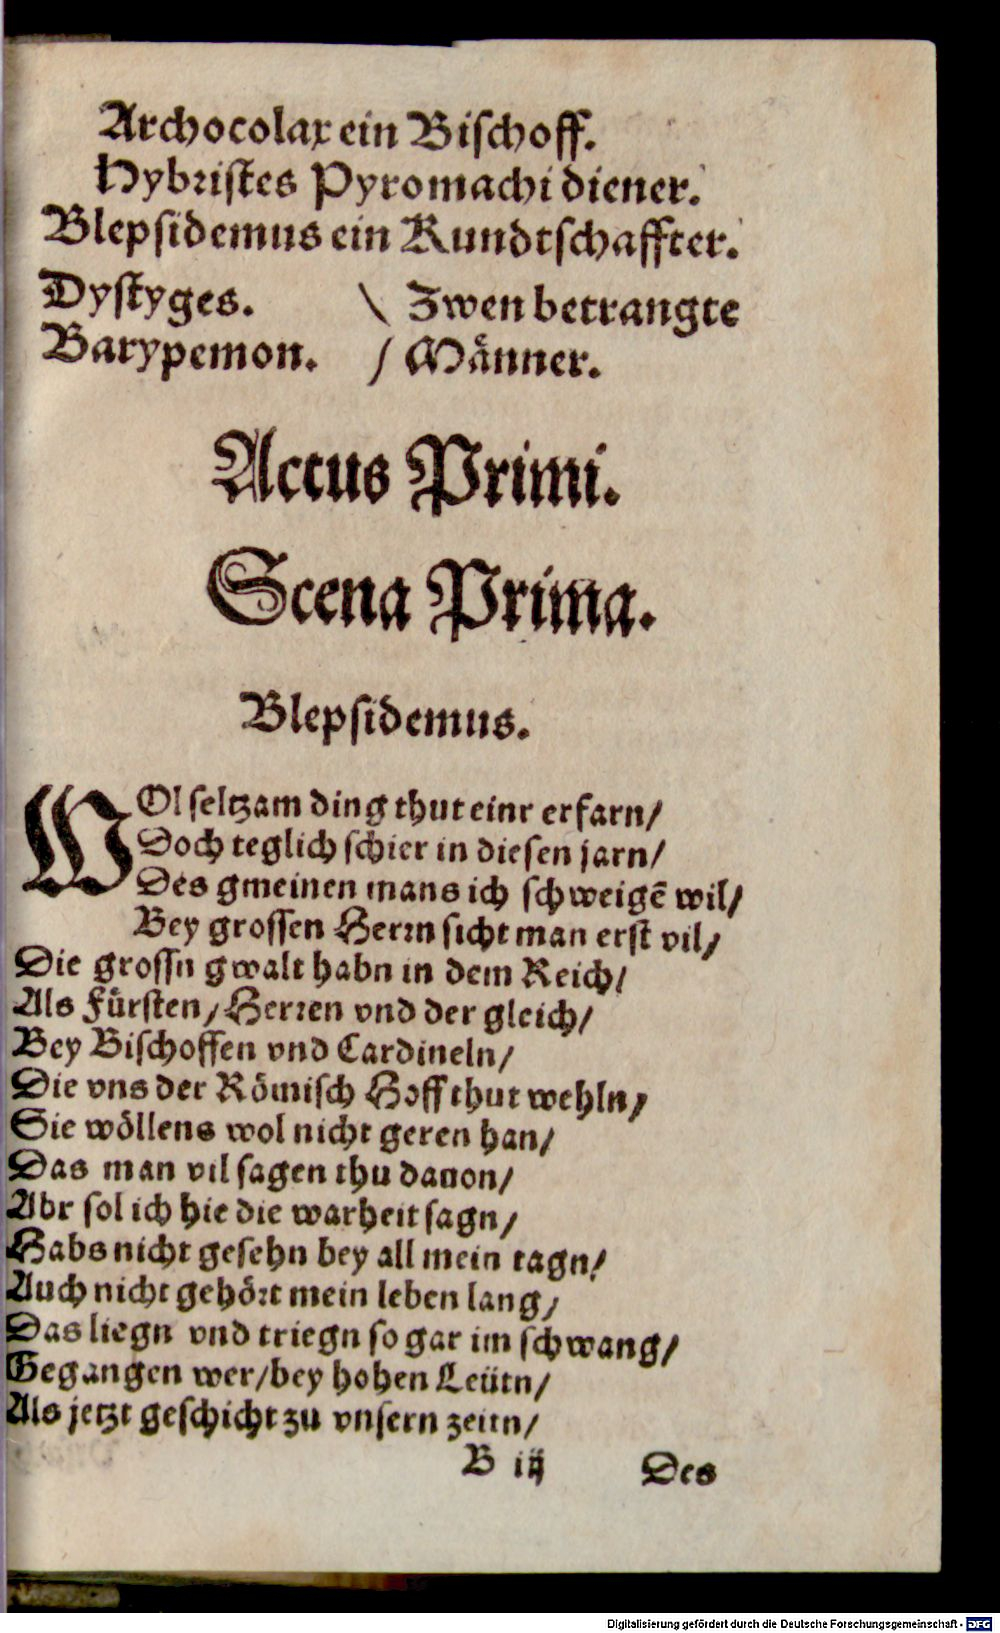 Archocolax ein Bischoff.
Hybristes Pyromachi diener.
Blepsidemus ein Kundtschaffter.
Dystyges. \ Zwen betrangte
Barypemon. / Männer.
Actus Primi.
Scena Prima.
Blepsidemus.
WOl seltzam ding thut einr erfarn/
Doch teglich schier in diesen jarn/
Des gmeinen mans ich schweigē wil/
Bey grossen Herrn sicht man erst vil/
Die grossn gwalt habn in dem Reich/
Als Fürsten/ Herren vnd der gleich/
Bey Bischoffen vnd Cardineln/
Die vns der Römisch Hoff thut wehln/
Sie wöllens wol nicht geren han/
Das man vil sagen thu dauon/
Abr sol ich hie die warheit sagn/
Habs nicht gesehn bey all mein tagn/
Auch nicht gehört mein leben lang/
Das liegn vnd triegn so gar im schwang/
Gegangen wer/bey hohen Leütn/
Als jetzt geschicht zu vnsern zeitn/
B iij Des
Digitalisierung gefördert durch die Deutsche Forschungsgemeinschaft - DFG